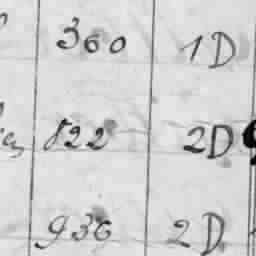 360 1D
822 2D
936 2D